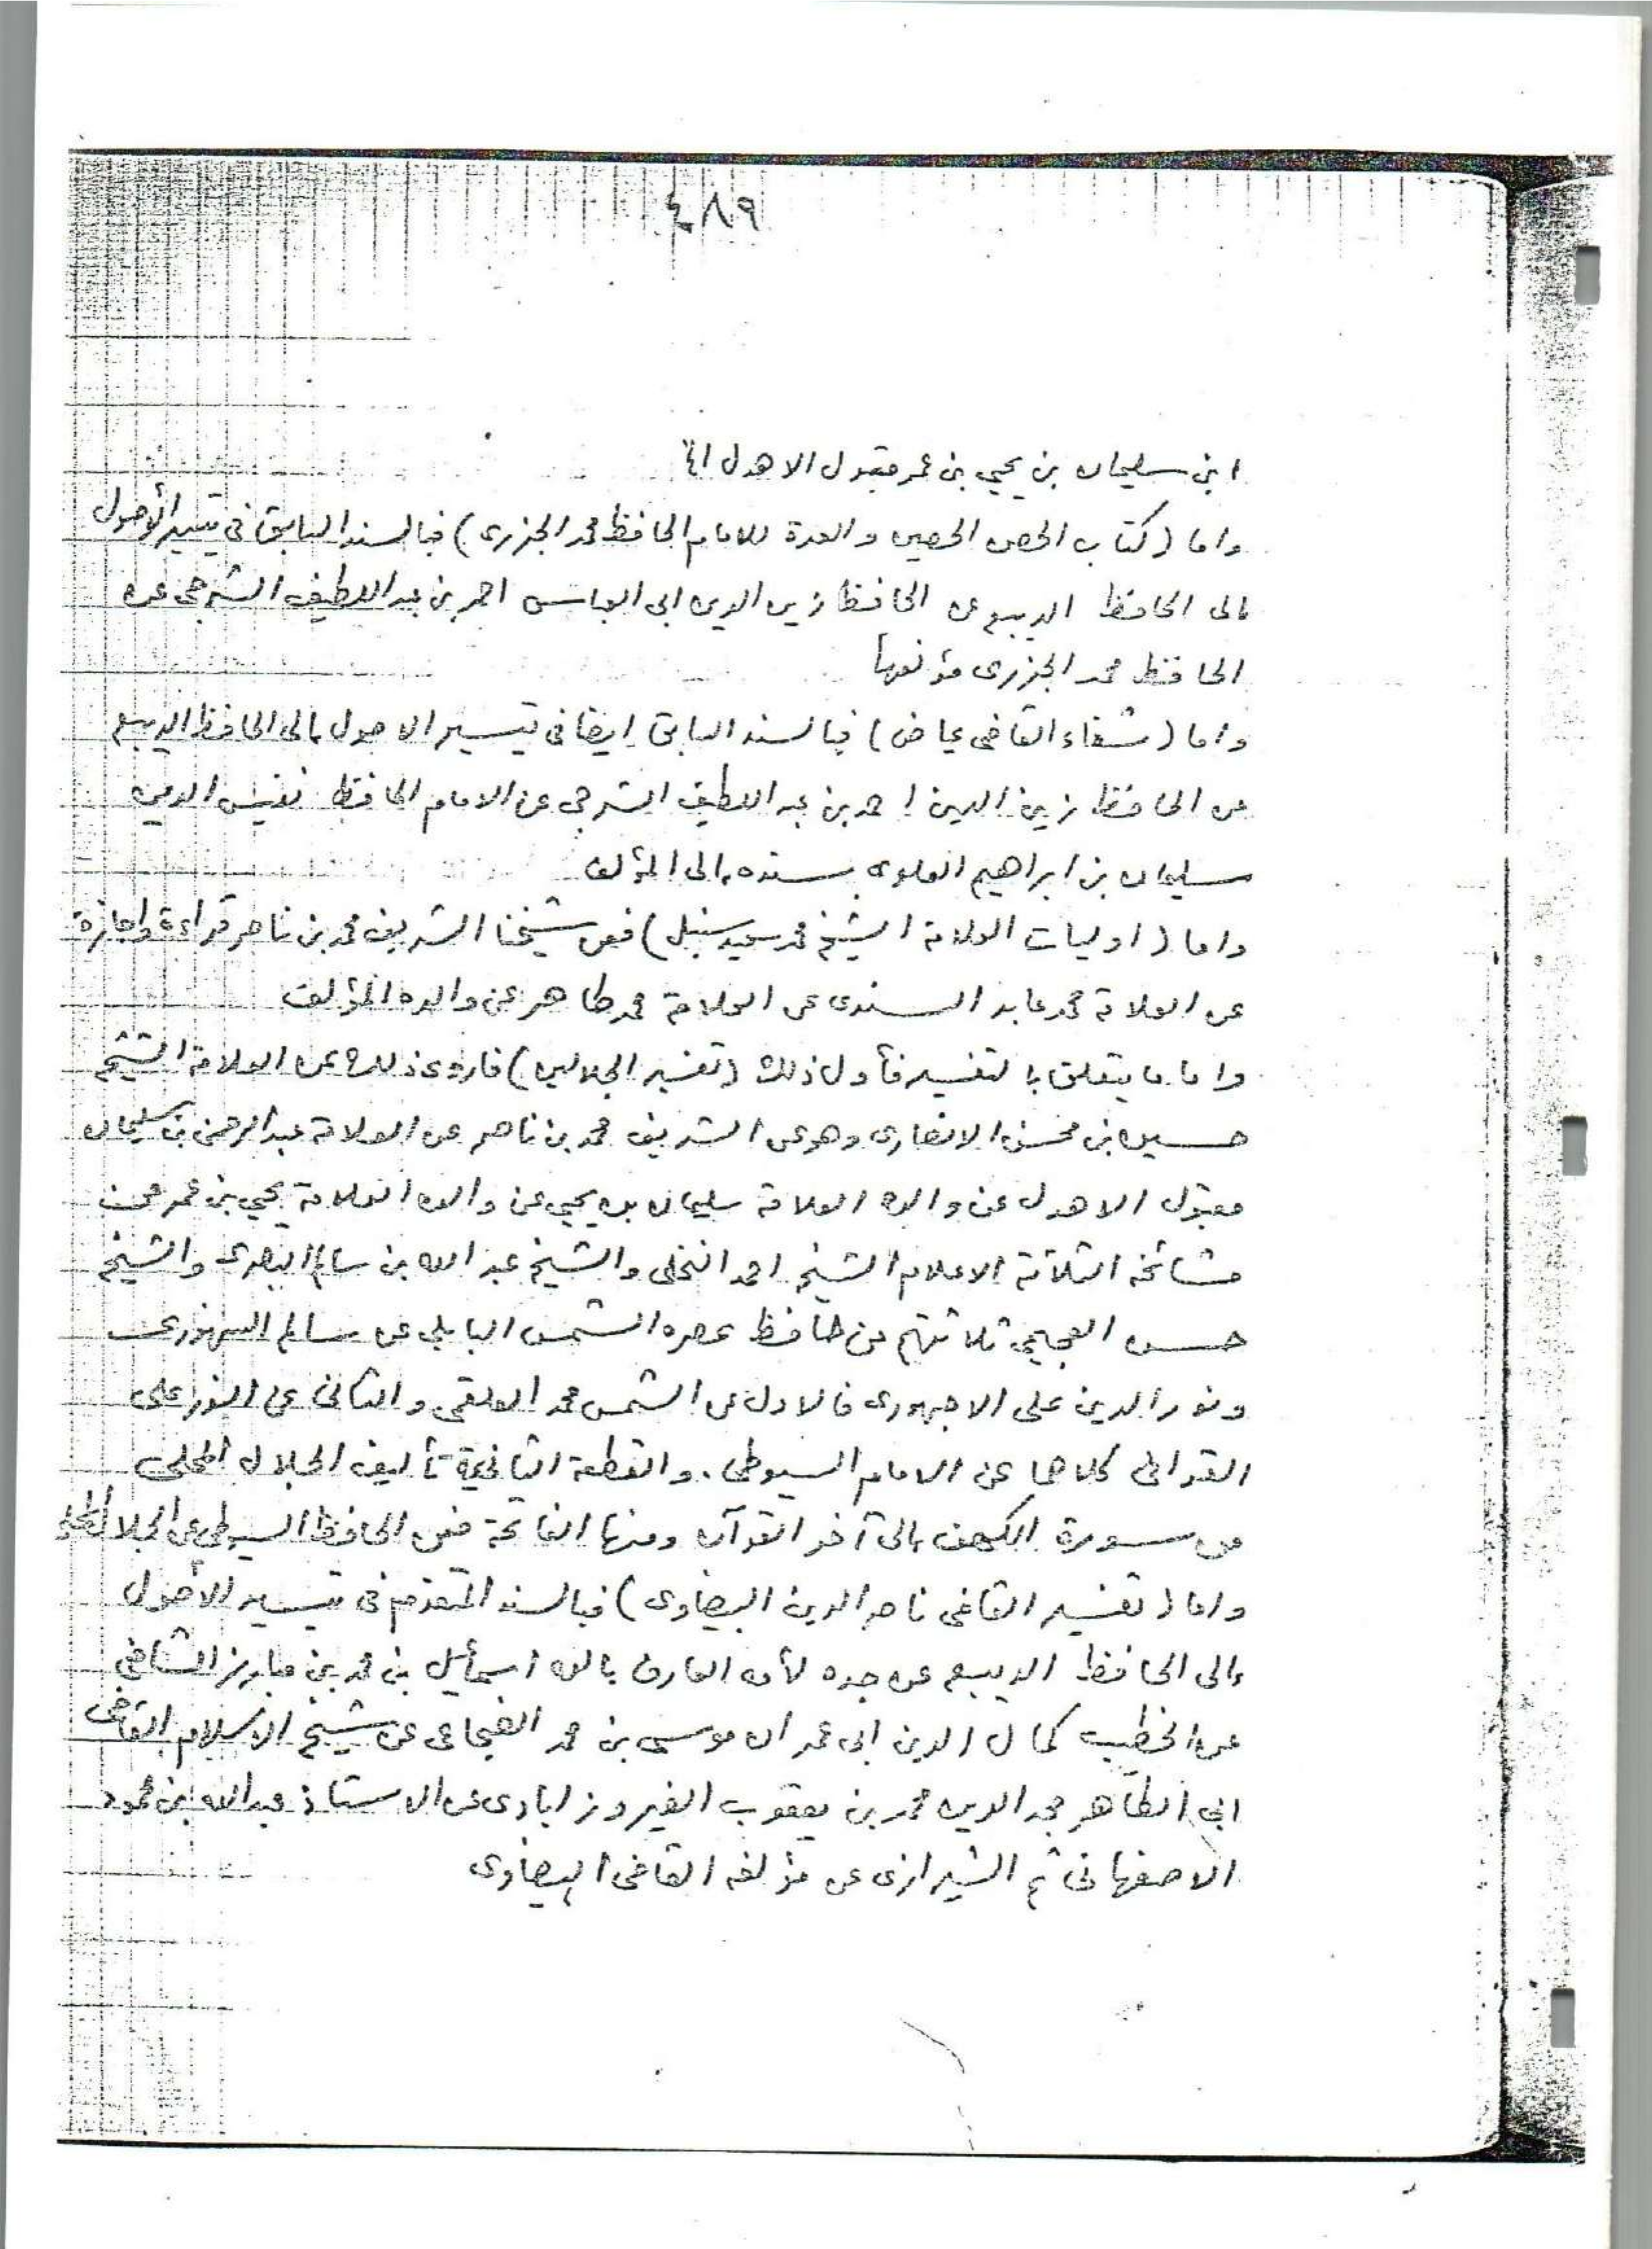 ٤٨٩
ابن سليمان بن يحيي بن عمر مقبول الاهدل
واما (كتاب الحصن الحصين والعدة للامام الحافظ محمد الجزرى) فبالسند السابق فى تيسير الأصول
إلى الحافظ الديبع عن الحافظ زين الدين ابى العباس احمد بن عبد اللطيف الشرجى عن
الحافظ محمد الجزرى مؤلفها
واما (شفاء القاضى عياض) فبالسند السابق ايضا فى تيسير الاصول إلى الحافظ الديبع
عن الحافظ زين الدين احمد بن عبد اللطيف الشرجى عن الامام الحافظ نفيس الدين
سليمان بن ابراهيم العلوى بسنده إلى المؤلف
واما (اوليات العلامة الشيخ محمد سعيد سنبل) فعن شيخنا الشريف محمد بن ناصر قراءة واجازة
عن العلامة محمد عابد السندى عن العلامة محمد طاهر عن والده المؤلف
واما ما يتعلق بالتفسير فأول ذلك (تفسير الجلالين) فاروى ذلك عن العلامة الشيخ
حسين بن محسن الانصارى وهو عن الشريف محمد بن ناصر عن العلامة عبد الرحمن بن سليمان
مقبول الاهدل عن والده العلامة سليمان بن يحيي عن والده العلامة يحيي بن عمر عن
مشائخه الثلاثة الاعلام الشيخ احمد النخلى والشيخ عبد الله بن سالم البصرى والشيخ
حسن العجيمي ثلاثتهم عن حافظ عصره الشمس البابلي عن سالم السنهورى
ونور الدين على الاجهورى فالاول عن الشمس محمد العلقمى والثانى عن النور على
القرافى كلاهما عن الامام السيوطى. والقطعة الثانية تأليف الجلال المحلى
من سورة الكهف إلى آخر القرآن ومنها الفاتحة فعن الحافظ السيوطى عن الجلال المحلى
واما (تفسير القاضى ناصر الدين البيضاوى) فبالسند المتقدم فى تيسير الأصول
إلى الحافظ الديبع عن جده لأمه العارف بالله اسمأعيل بن محمد بن مبارز الشافعى
عن الخطيب كمال الدين ابى عمران موسى بن محمد الضجاعى عن شيخ الاسلام القاضى
ابى الطاهر مجد الدين محمد بن يعقوب الفيروز ابادى عن الاستاذ عبدالله بن محمود
الاصفهانى ثم الشيرازى عن مؤلفه القاضى البيضاوى